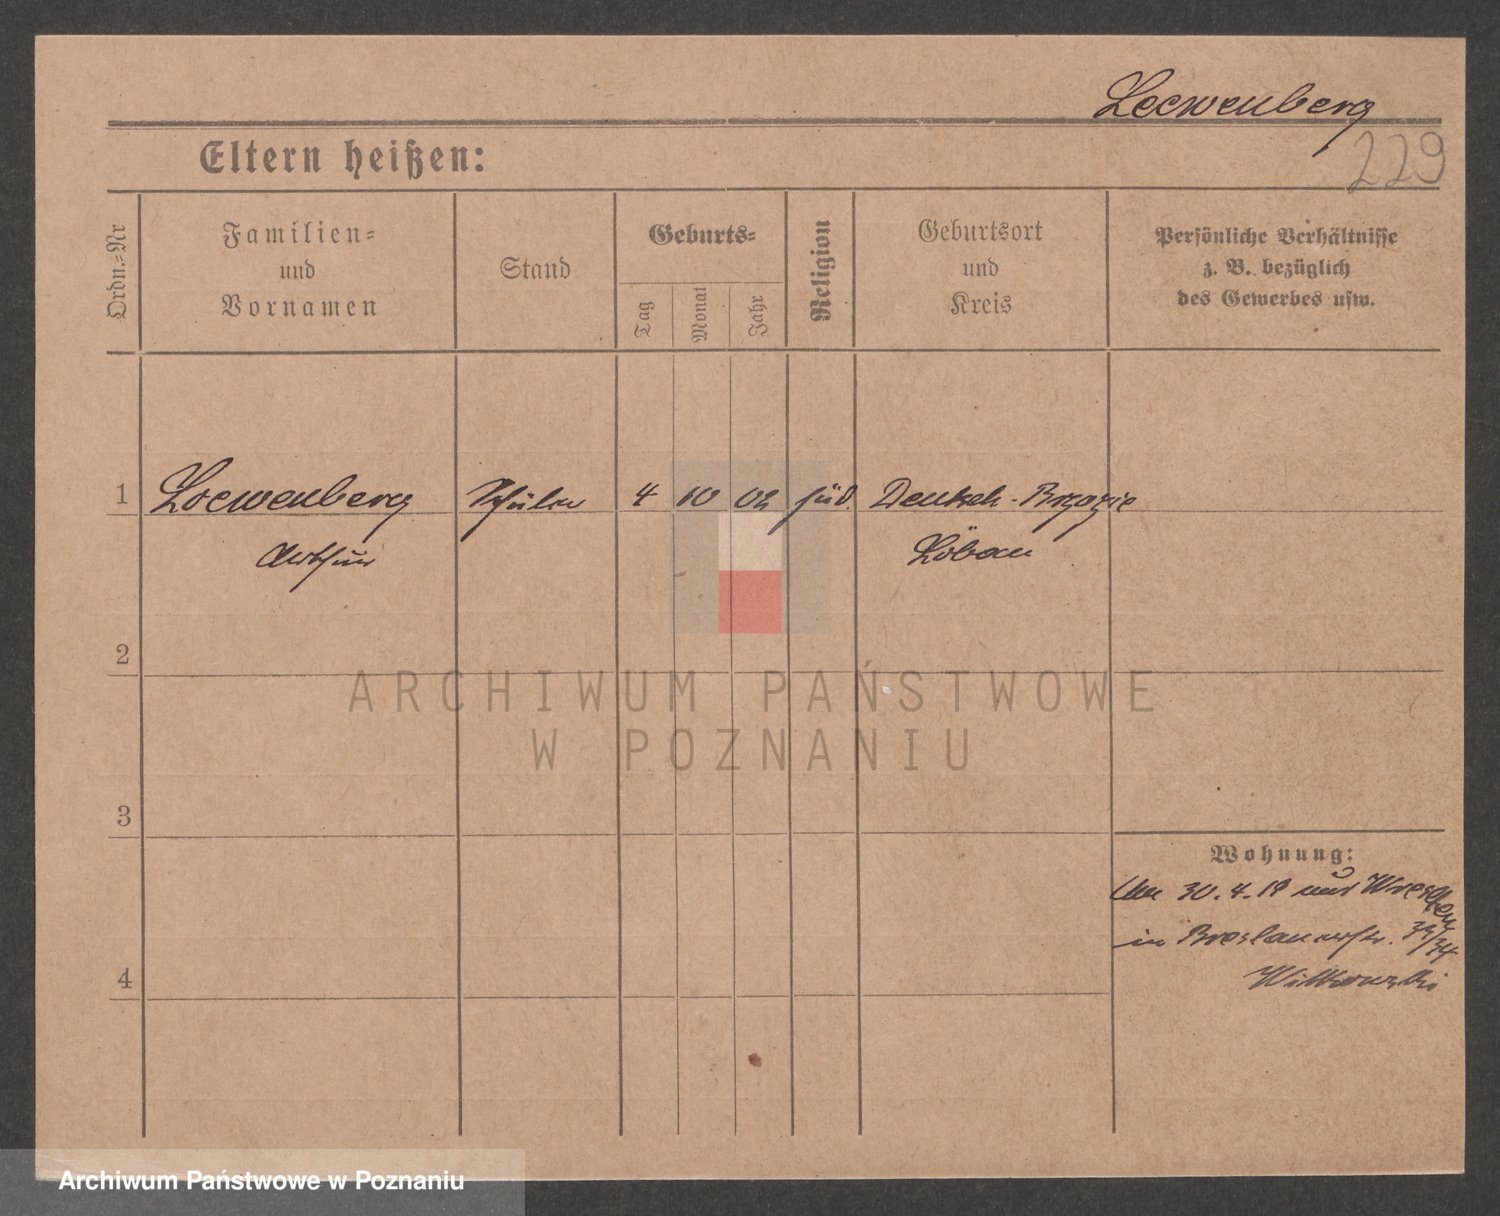 Loewenberg
229
Eltern heißen:
Ordn.-Nr
Familien-
und
Vornamen
Stand
Geburts-
Tag
Monat
Jahr
Religion
Geburtsort
und
Kreis
Persönliche Verhältnisse
z. B. bezüglich
des Gewerbes usw.
1 Loewenberg Schüler 4 10 02 jüd. Deutsch-Brzozie
Arthur Löbau
2
3
4
Wohnung:
30.4.19 Wreschen
in Breslauerstr. 33/34
Witkowski
ARCHIWUM PAŃSTWOWE
W POZNANIU
Archiwum Państwowe w Poznaniu